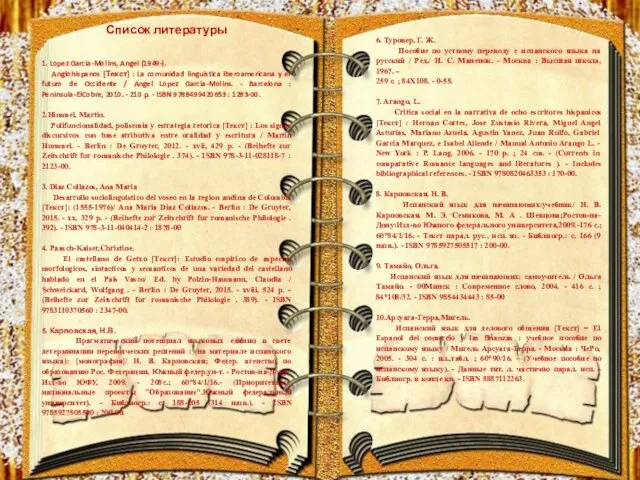 Список литературы
1. Lopez Garcia-Molins, Angel (1949-).
Anglohispanos [Текст] : La comunidad linguistica iberoamericana y el
futuro de Occidente / Angel Lopez Garcia-Molins. - Barcelona :
Peninsula-ElCobre, 2010. - 210 p. - ISBN 9788499420653 : 1283-00.
2. Himmel, Martin.
Polifuncionalidad, polisemia y estrategia retorica [Текст] : Los signos
discursivos con base atributiva entre oralidad y escritura / Martin
Hummel. - Berlin : De Gruyter, 2012. - xvii, 429 p. - (Beihefte zur
Zeitschrift fur romanische Philologie . 374). - ISBN 978-3-11-028118-7 :
2123-00.
3. Diaz Collazos, Ana Maria
Desarrollo sociolinguistico del voseo en la region andina de Colombia
[Текст]: (1555-1976)/ Ana Maria Diaz Collazos. - Berlin : De Gruyter,
2015. - xx, 329 p. - (Beihefte zur Zeitschrift fur romanische Philologie .
392). - ISBN 978-3-11-040414-2 : 1878-00
4. Paasch-Kaiser, Christine.
El castellano de Getxo [Текст]: Estudio empirico de aspectos
morfologicos, sintacticos y semanticos de una variedad del castellano
hablado en el Pais Vasco/ Ed. by Polzin-Haumann, Claudia /
Schweickard, Wolfgang . - Berlin : De Gruyter, 2015. - xviii, 524 p. -
(Beihefte zur Zeitschrift fur romanische Philologie . 389). - ISBN
9783110370560 : 2347-00.
5. Карповская, Н.В.
Прагматический потенциал языковых единиц в свете
детерминации переводческих решений (на материале испанского
языка): [монография]/ Н. В. Карповская; Федер. агентство по
образованию Рос. Федерации, Южный федер.ун-т. - Ростов-на-Дону:
Изд-во ЮФУ, 2009. - 208с.; 60*84/1/16.- (Приоритетные
национальные проекты "Образование".Южный федеральный
университет). - Библиогр.: с. 188-205 (314 назв.). - ISBN
9785927505500 : 200-00.
6. Туровер, Г. Ж.
Пособие по устному переводу с испанского языка на
русский / Ред./ И. С. Маненок. - Москва : Высшая школа,
1967. –
259 с. ; 84Х108. - 0-55.
7. Arango, L.
Critica social en la narrativa de ocho escritores hispanicos
[Текст] : Hernan Cortes, Jose Eustasio Rivera, Miguel Angel
Asturias, Mariano Azuela, Agustin Yanez, Juan Rulfo, Gabriel
Garcia Marquez, e Isabel Allende / Manual Antonio Arango L. -
New York : P. Lang, 2006. - 170 p. ; 24 cm. - (Currents in
comparative Romance languages and literatures ). - Includes
bibliographical references. - ISBN 9780820463353 : 170-00.
8. Карповская, Н. В.
Испанский язык для начинающих:учебник/ Н. В.
Карповская, М. Э. Семикова, М. А . Шевцова;Ростов-на-
Дону:Изд-во Южного федерального университета,2009.-176 с.;
60*84/1/16. - Текст парал. рус., исп. яз. - Библиогр.: с. 166 (9
назв.). - ISBN 9785927505517 : 200-00.
9. Тамайо, Ольга.
Испанский язык для начинающих: самоучитель / Ольга
Тамайо. - 00Минск : Современное слово, 2004. - 416 с. ;
84*108/32. - ISBN 9854434443 : 85-00
10.Арсуага-Герра,Мигель.
Испанский язык для делового общения [Текст] = El
Español del comercio y las finanzas : учебное пособие по
испанскому языку / Мигель Арсуага-Герра. - Москва : ЧеРо,
2005. - 304 с. : ил.,табл. ; 60*90/16. - (Учебное пособие по
испанскому языку). - Данные тит. л. частично парал. исп. -
Библиогр. в конце кн. - ISBN 5887112263.